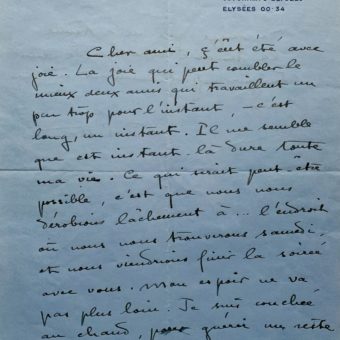 ELYSÉES 00-34
Cher ami, ç'eût été avec
joie. La joie qui peut combler le
mieux deux amis qui travaillent un
peu trop pour l'instant, - c'est
long, un instant. Il me semble
que cet instant-là dure toute
ma vie. Ce qui serait peut-être
possible, c'est que nous nous
dérobions lâchement à... l'endroit
où nous nous trouverons samedi,
et nous viendrions finir la soirée
avec vous. Mon espoir ne va
pas plus loin. Je suis couchée
au chaud, pour guérir un reste